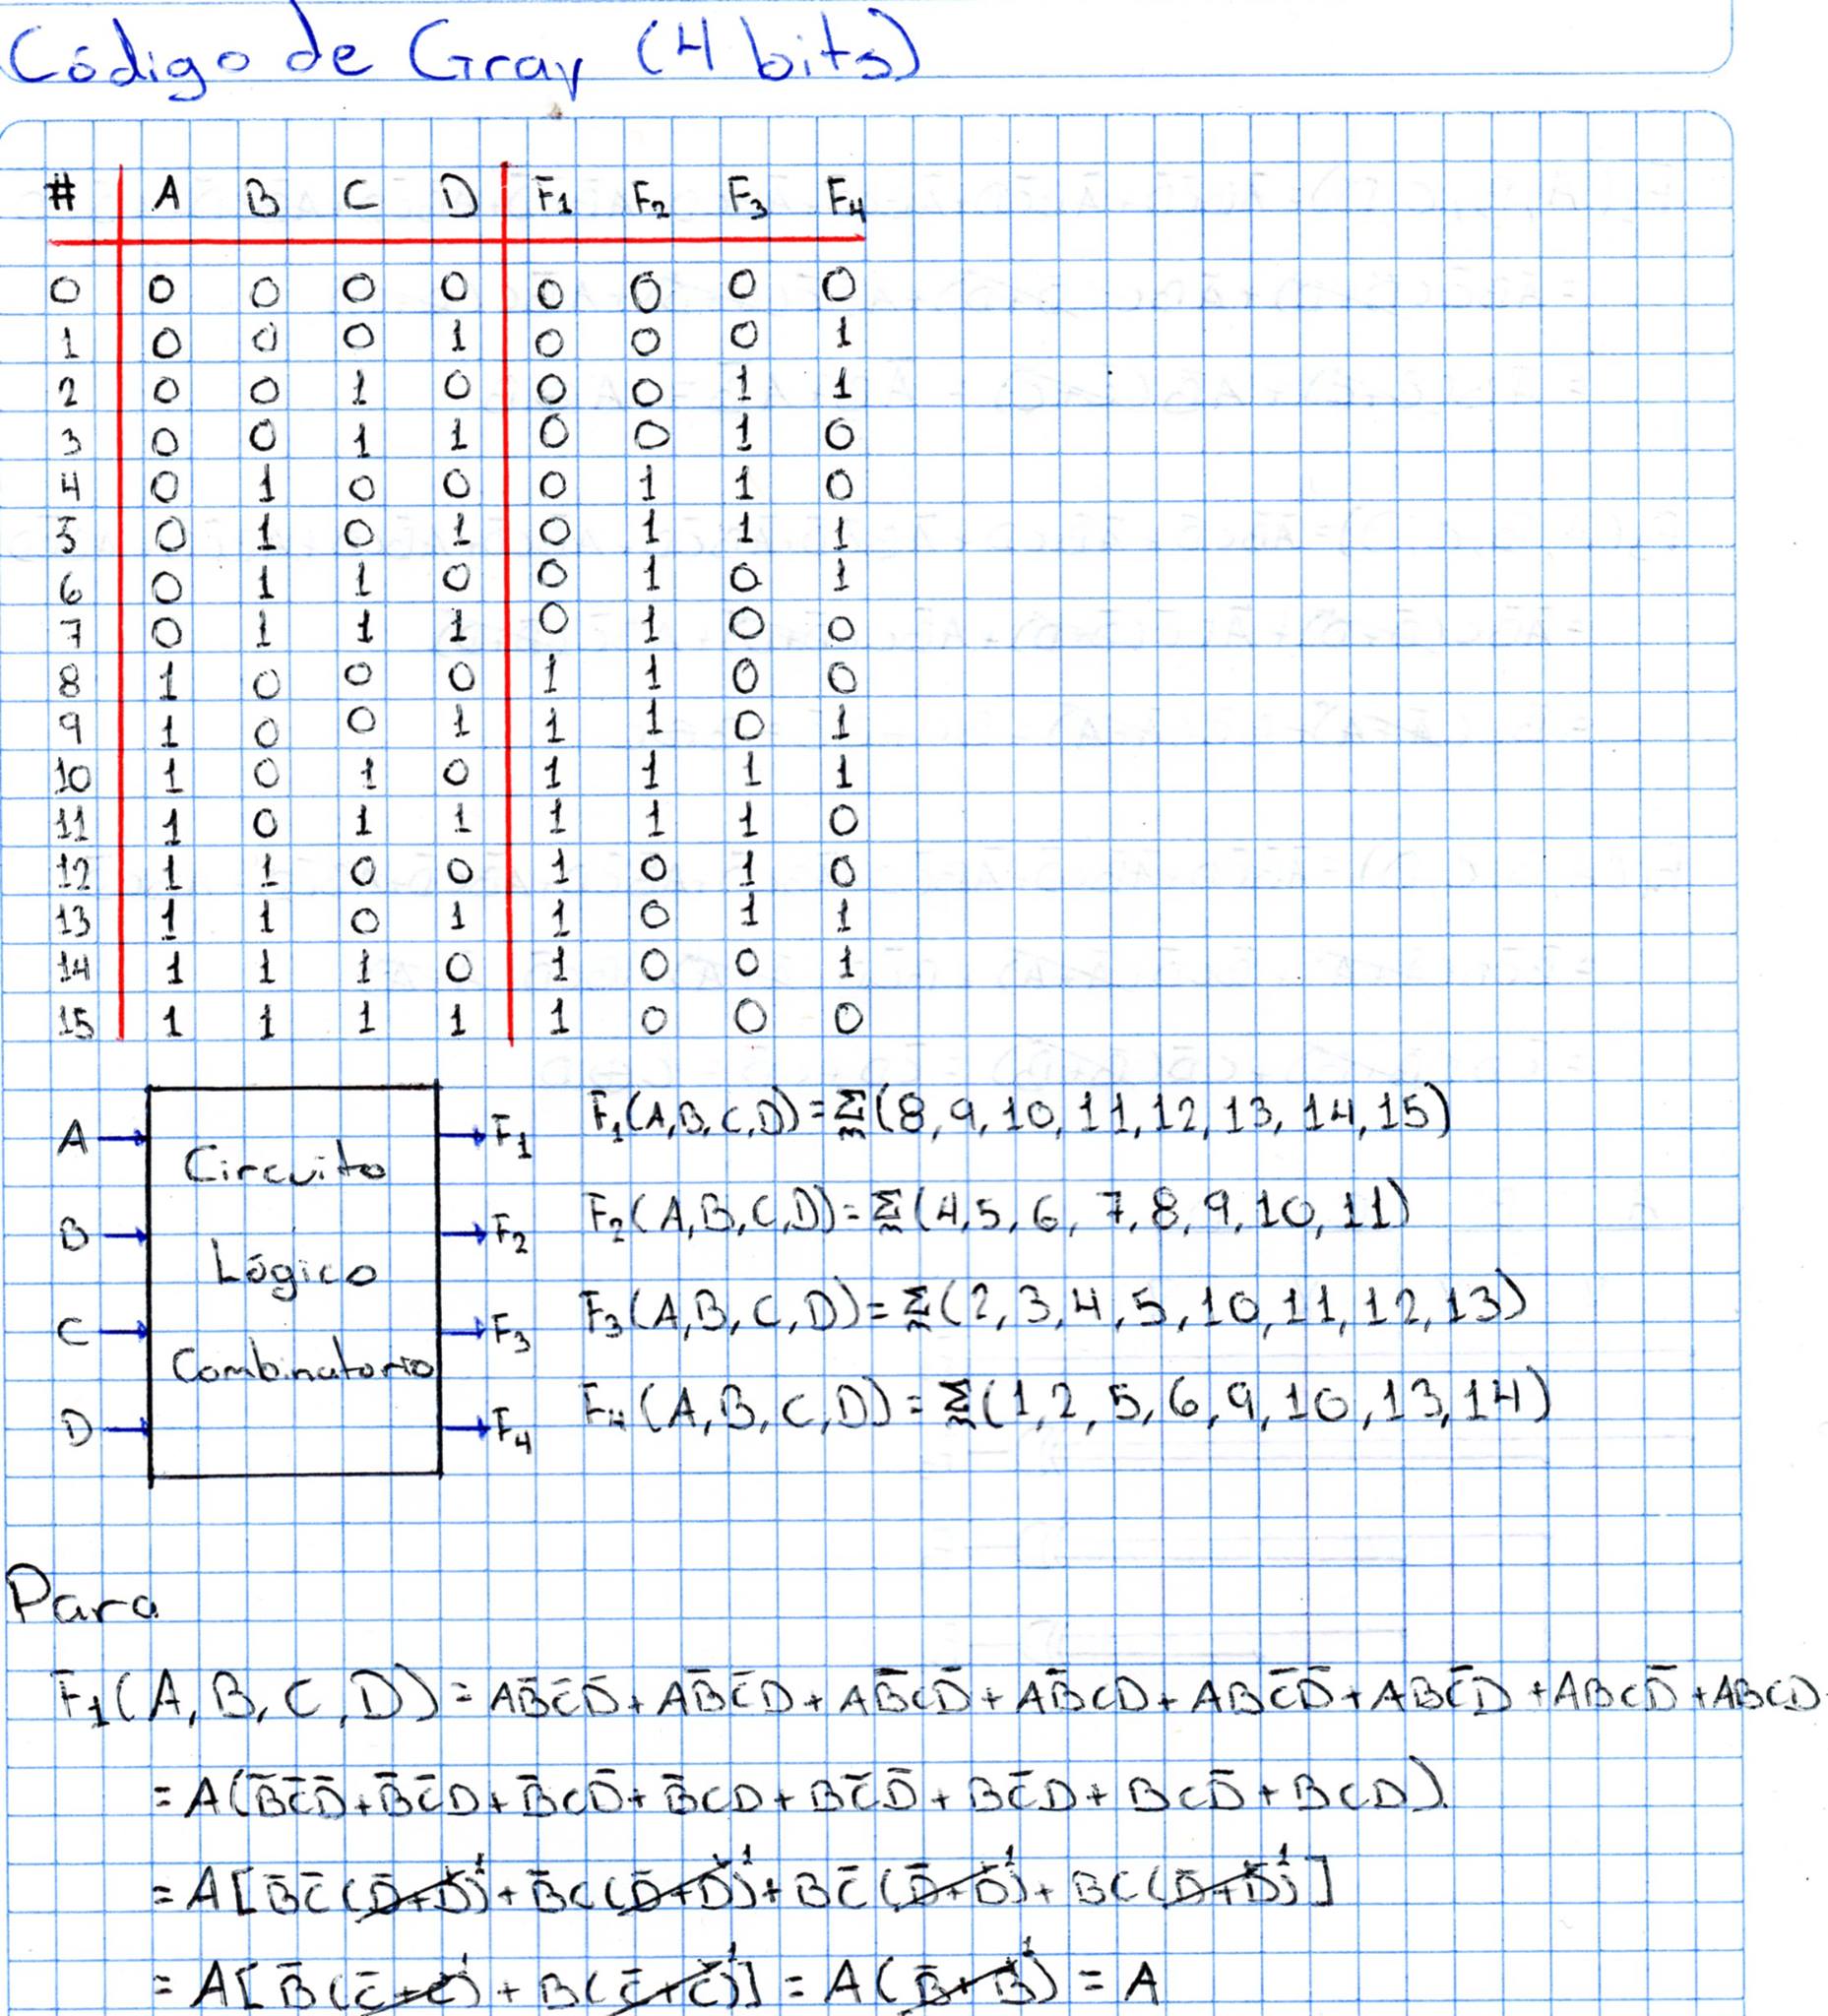 Código de Gray (4 bits)
# A B C D F₁ F₂ F₃ F₄
0 0 0 0 0 0 0 0 0
1 0 0 0 1 0 0 0 1
2 0 0 1 0 0 0 1 1
3 0 0 1 1 0 0 1 0
4 0 1 0 0 0 1 1 0
5 0 1 0 1 0 1 1 1
6 0 1 1 0 0 1 0 1
7 0 1 1 1 0 1 0 0
8 1 0 0 0 1 1 0 0
9 1 0 0 1 1 1 0 1
10 1 0 1 0 1 1 1 1
11 1 0 1 1 1 1 1 0
12 1 1 0 0 1 0 1 0
13 1 1 0 1 1 0 1 1
14 1 1 1 0 1 0 0 1
15 1 1 1 1 1 0 0 0
A
B
C
D
Circuito
Lógico
Combinatorio
F₁
F₂
F₃
F₄
F₁(A,B,C,D)=Σm(8,9,10,11,12,13,14,15)
F₂(A,B,C,D)=Σm(4,5,6,7,8,9,10,11)
F₃(A,B,C,D)=Σm(2,3,4,5,10,11,12,13)
F₄(A,B,C,D)=Σm(1,2,5,6,9,10,13,14)
Para
F₁(A,B,C,D)=AB̄C̄D̄+AB̄C̄D+AB̄CD̄+AB̄CD+ABC̄D̄+ABC̄D+ABCD̄+ABCD
=A(B̄C̄D̄+B̄C̄D+B̄CD̄+B̄CD+BC̄D̄+BC̄D+BCD̄+BCD)
=A[B̄C̄(D̄+D)¹+B̄C(D̄+D)¹+BC̄(D̄+D)¹+BC(D̄+D)¹]
=A[B̄(C̄+C)¹+B(C̄+C)¹]=A(B̄+B)¹=A